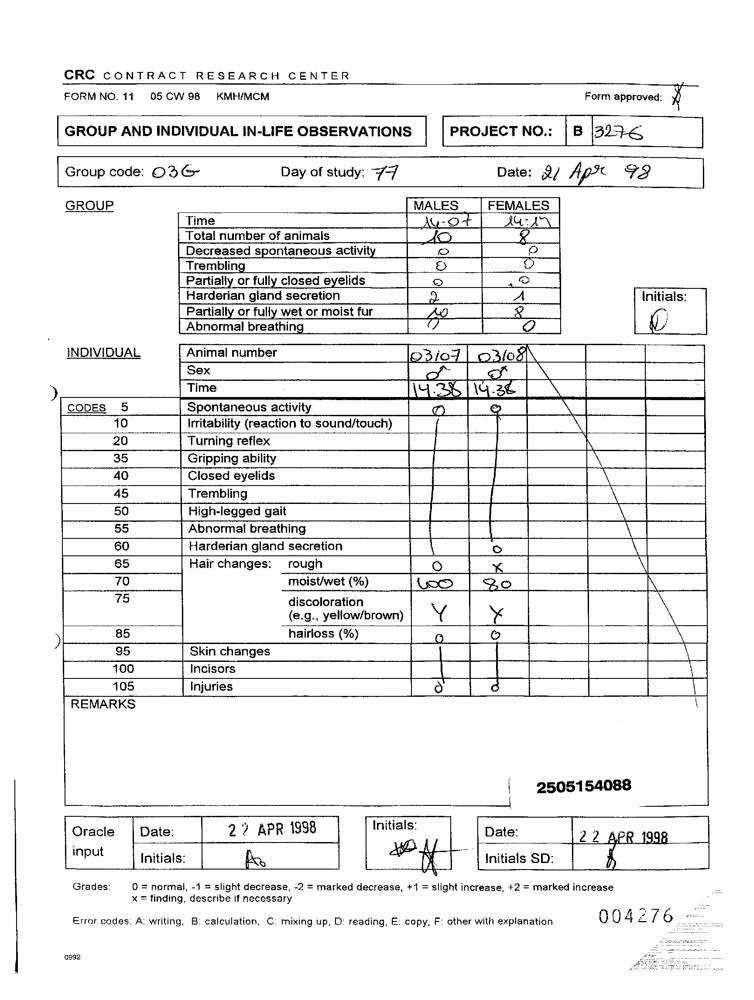 CRC CONTRACT RESEARCH CENTER
FORM NO. 11 05 CW 98 KMH/MCM Form approved:
GROUP AND INDIVIDUAL IN-LIFE OBSERVATIONS PROJECT NO.: B 3276
Group code: 03G Day of study: 77 Date: 21 Apr 98
GROUP MALES FEMALES
Time 14.07 14:17
Total number of animals 10 8
Decreased spontaneous activity 0 0
Trembling 0 0
Partially or fully closed eyelids 0 0
Harderian gland secretion 2 1 Initials:
Partially or fully wet or moist fur 10 8
Abnormal breathing 0 0
INDIVIDUAL Animal number 03107 03108
Sex ♂ ♂
Time 14.38 14.38
CODES 5 Spontaneous activity 0 0
10 Irritability (reaction to sound/touch)
20 Turning reflex
35 Gripping ability
40 Closed eyelids
45 Trembling
50 High-legged gait
55 Abnormal breathing
60 Harderian gland secretion 0
65 Hair changes: rough 0 x
70 moist/wet (%) 100 80
75 discoloration
(e.g., yellow/brown) Y Y
85 hairloss (%) 0 0
95 Skin changes
100 Incisors
105 Injuries 0 0
REMARKS
2505154088
Oracle Date: 22 APR 1998 Initials: Date: 22 APR 1998
input Initials: Initials SD:
Grades: 0 = normal, -1 = slight decrease, -2 = marked decrease, +1 = slight increase, +2 = marked increase
x = finding, describe if necessary
Error codes: A: writing, B: calculation, C: mixing up, D: reading, E: copy, F: other with explanation
004276
0992